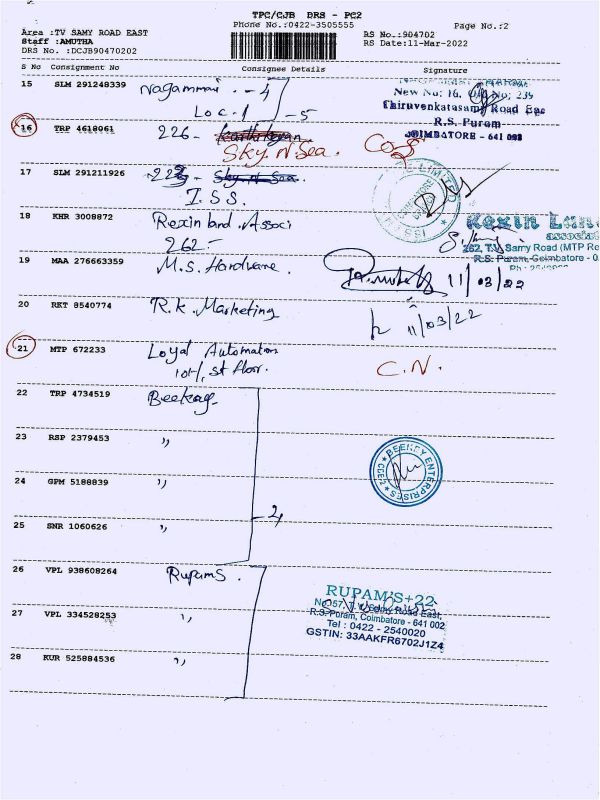 TPC/CJB DRS - PC2
Phone No.:0422-3505555
Page No.:2
Area :TV SAMY ROAD EAST
Staff :AMUTHA
DRS No. :DCJB90470202
RS No.:904702
RS Date:11-Mar-2022
S No Consignment No Consignee Details Signature
15 SLM 291248339 Nagammai - 4
Loc. 1 - 5
New No: 16, Old No; 239
Thiruvenkatasamy Road Eas
R.S. Puram
COIMBATORE - 641 002
16 TRP 4618061 226 -
Sky N Sea.
17 SLM 291211926
I.S.S.
18 KHR 3008872 Rexin land Associ
262 -
Rexin Land
associat
262, T.V. Samy Road (MTP Ro
R.S. Puram, Coimbatore - 0
19 MAA 276663359 M.S. Hardware. 11/03/22
20 RKT 8540774 R.K. Marketing 11/03/22
21 MTP 672233 Loyal Automation
101/, 1st floor. C.N.
22 TRP 4734519 Beekay
23 RSP 2379453 ,,
24 GPM 5188839 ,,
BEEKEY ENTERPRISES
CBE-2
25 SNR 1060626 ,,
26 VPL 938608264 Rupams.
RUPAM'S+22
No.57, T.V. Samy Road East,
R.S. Puram, Coimbatore - 641 002
Tel : 0422 - 2540020
GSTIN: 33AAKFR6702J1Z4
27 VPL 334528253 ,,
28 KUR 525884536 ,,